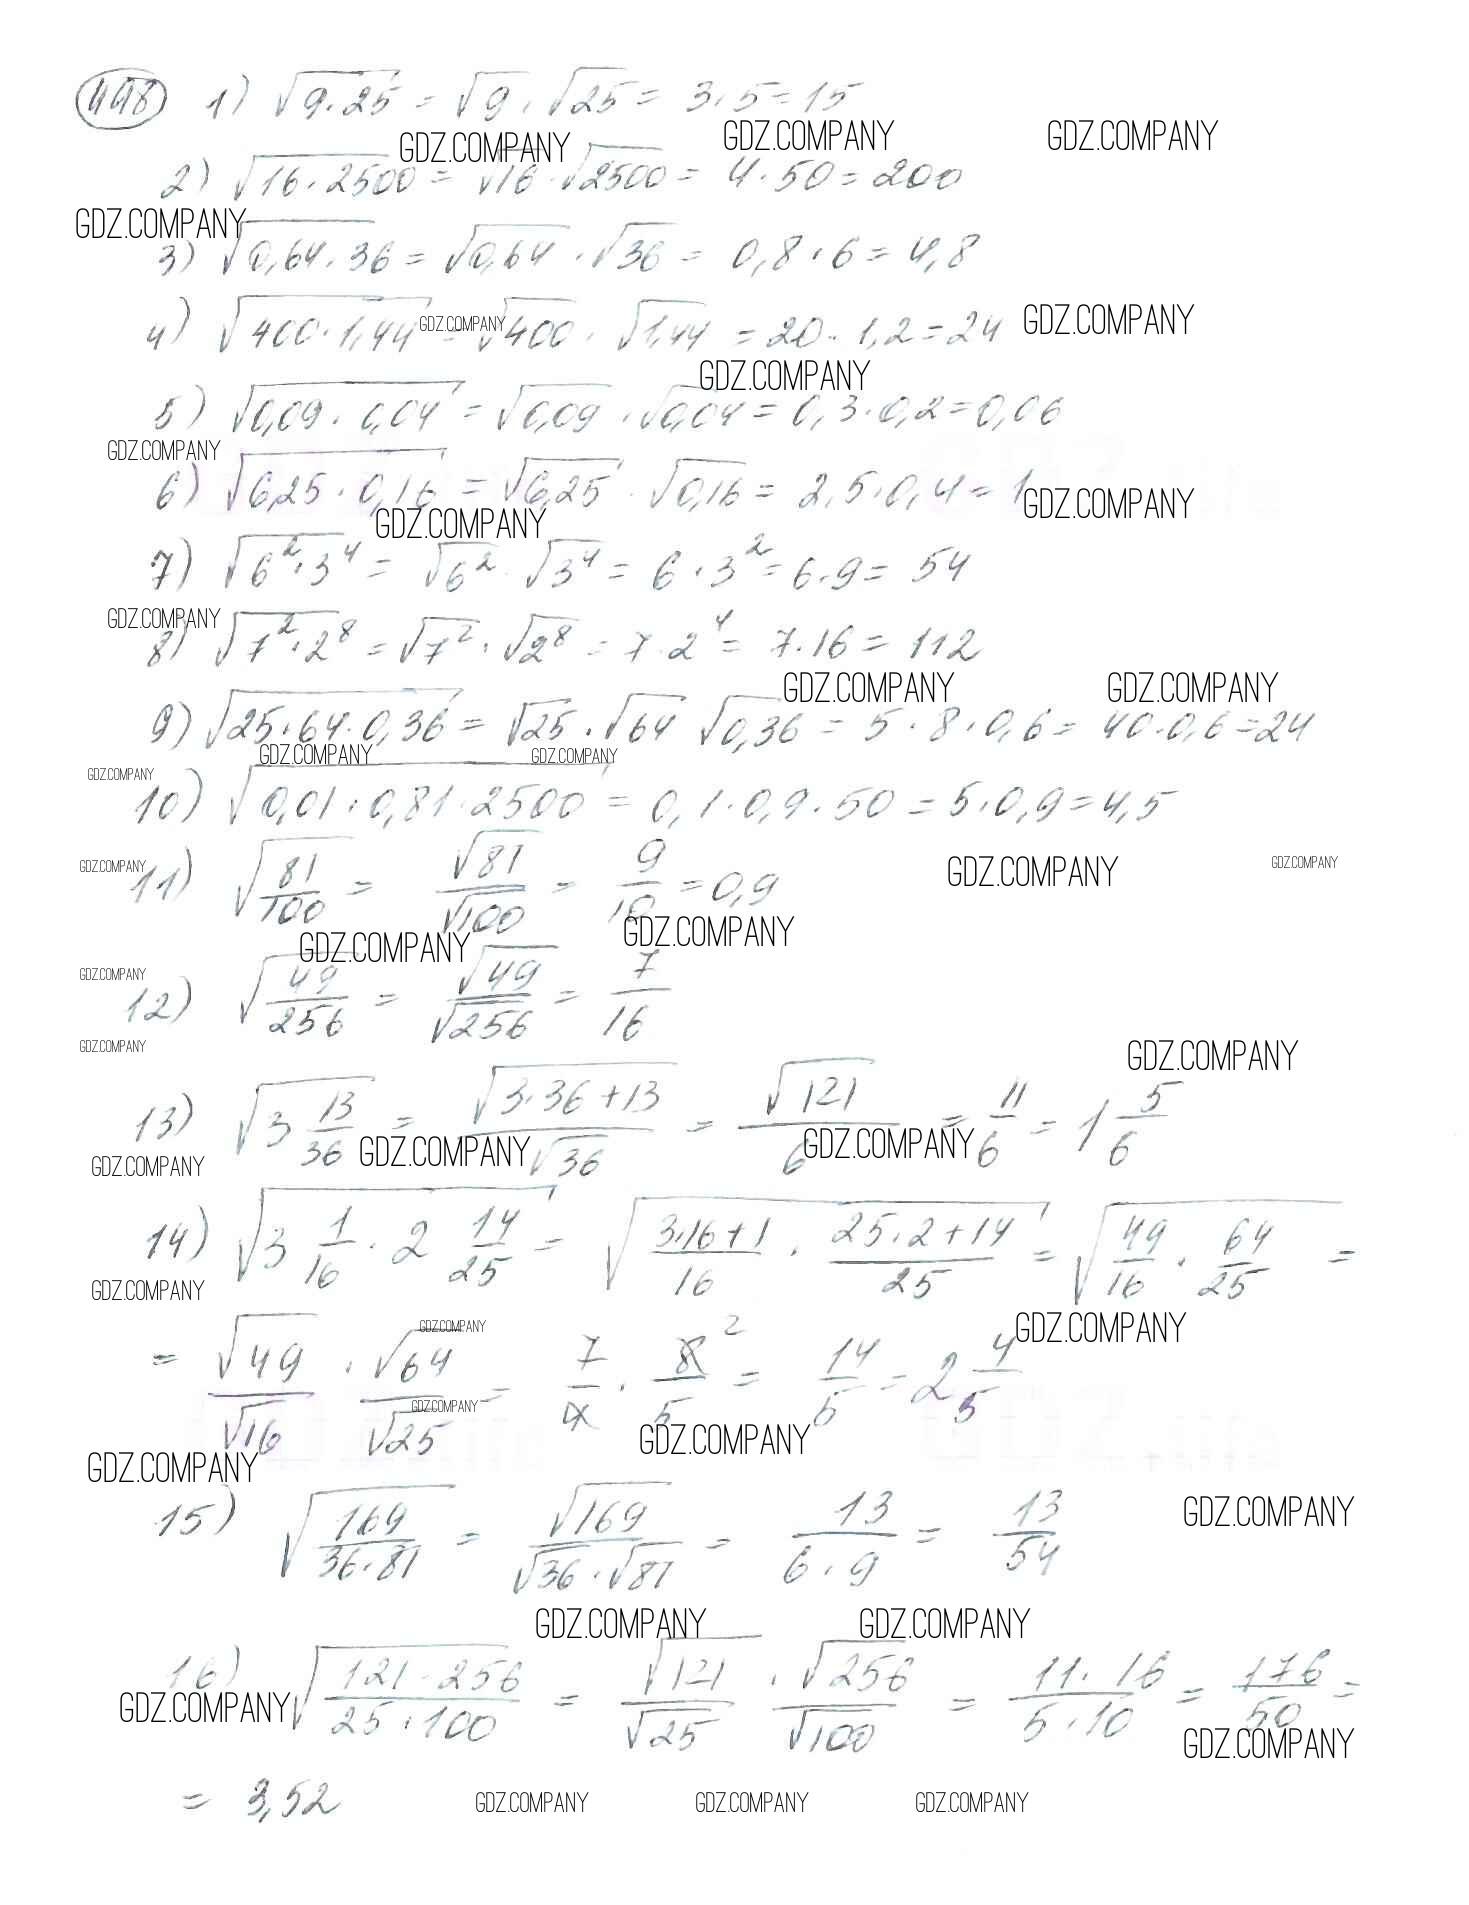 448 1) √9·25 = √9 · √25 = 3·5 = 15
GDZ.COMPANY GDZ.COMPANY GDZ.COMPANY
2) √16·2500 = √16 · √2500 = 4·50 = 200
GDZ.COMPANY
3) √0,64·36 = √0,64 · √36 = 0,8·6 = 4,8
4) √400·1,44 = √400 · √1,44 = 20·1,2 = 24
GDZ.COMPANY GDZ.COMPANY
GDZ.COMPANY
5) √0,09·0,04 = √0,09 · √0,04 = 0,3·0,2 = 0,06
GDZ.COMPANY
6) √6,25·0,16 = √6,25 · √0,16 = 2,5·0,4 = 1
GDZ.COMPANY GDZ.COMPANY
7) √6²·3⁴ = √6² · √3⁴ = 6·3² = 6·9 = 54
GDZ.COMPANY
8) √7²·2⁸ = √7² · √2⁸ = 7·2⁴ = 7·16 = 112
GDZ.COMPANY GDZ.COMPANY
9) √25·64·0,36 = √25 · √64 √0,36 = 5·8·0,6 = 40·0,6 = 24
GDZ.COMPANY GDZ.COMPANY GDZ.COMPANY
10) √0,01·0,81·2500 = 0,1·0,9·50 = 5·0,9 = 4,5
GDZ.COMPANY GDZ.COMPANY GDZ.COMPANY
11) √81/100 = √81/√100 = 9/10 = 0,9
GDZ.COMPANY GDZ.COMPANY
GDZ.COMPANY
12) √49/256 = √49/√256 = 7/16
GDZ.COMPANY GDZ.COMPANY
13) √3 13/36 = √3·36+13/√36 = √121/6 = 11/6 = 1 5/6
GDZ.COMPANY GDZ.COMPANY GDZ.COMPANY
14) √3 1/16 · 2 14/25 = √3·16+1/16 · 25·2+14/25 = √49/16 · 64/25 =
GDZ.COMPANY
GDZ.COMPANY GDZ.COMPANY
= √49/√16 · √64/√25 = 7/4 · 8/5 2 = 14/5 = 2 4/5
GDZ.COMPANY
GDZ.COMPANY GDZ.COMPANY
15) √169/36·81 = √169/√36·√81 = 13/6·9 = 13/54
GDZ.COMPANY
GDZ.COMPANY GDZ.COMPANY
16) √121·256/25·100 = √121/√25 · √256/√100 = 11·16/5·10 = 176/50 =
GDZ.COMPANY GDZ.COMPANY
= 3,52
GDZ.COMPANY GDZ.COMPANY GDZ.COMPANY